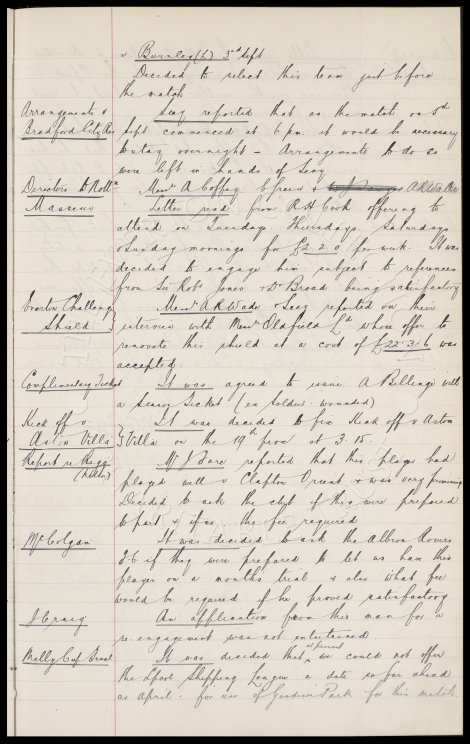 v Burnley (L) 3rd Sept
Decided to select this team just before
the match
Arrangements v
Bradford City Res
Secy reported that as the match on 5th
Sept commenced at 6 pm it would be necessary
to stay overnight - Arrangements to do so
were left in hands of Secy
Directors to Rott
Messrs A Coffey, E Green &
Masseur
Letter read from R H Cook offering to
attend on Tuesdays Thursdays, Saturdays
& Sunday mornings for £2.2.0 per week. It was
decided to engage him subject to references
from Sir Robt Jones & Dr Broad being satisfactory
Everton Challenge
Shield
Messrs A R Wade & Secy reported on their
interview with Messrs Oldfield Ld whose offer to
renovate this shield at a cost of £22.3.6 was
accepted.
Complimentary Ticket
It was agreed to issue A Bellinge with
a Season Ticket (ex soldier wounded)
Kick off v
Aston Villa
It was decided to fix Kick off v Aston
Villa on the 19th prox at 3.15.
Report re Regg
Mr J Sare reported that this player had
played well v Clapton Orient & was very promising
Decided to ask the club if they were prepared
to part & if so the fee required
McColgan
It was decided to ask the Albion Rovers
F.C if they were prepared to let us have this
player on a months trial & also what fee
would be required if he proved satisfactory
J Craig
An application from this man for a
re-engagement was not entertained
Melly Cup Final
It was decided that at present we could not offer
the Lpool Shipping League a date so far ahead
as April. for use of Goodison Park for this match.